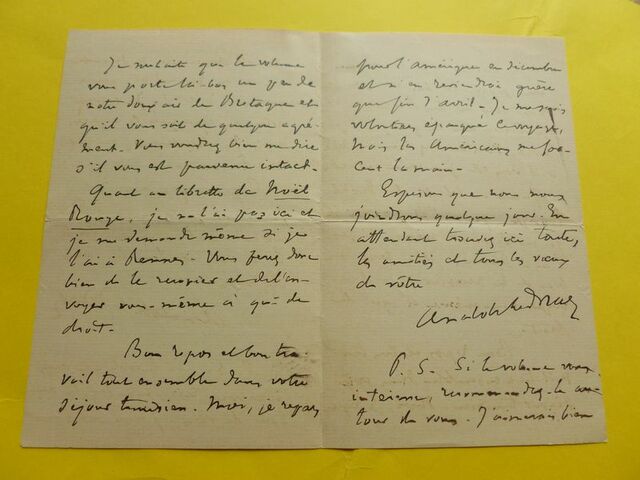 Je souhaite que le volume
vous porte là-bas un peu de
notre doux air de Bretagne et
qu'il vous soit de quelque agré-
ment. Vous voudrez bien me dire
s'il vous est parvenu intact.
Quant au libretto de Noël
Rouge, je ne l'ai pas ici et
je me demande même si je
l'ai à Rennes. Vous ferez donc
bien de le recopier et de l'en-
voyer vous-même à qui de
droit.
Bon repos et bon tra-
vail tout ensemble dans votre
séjour tunisien. Moi, je repars
pour l'Amérique en décembre
et n'en reviendrai guère
que fin d'avril. Je me serais
volontiers épargné ce voyage,
mais les Américains me for-
cent la main.
Espérons que nous nous
joindrons quelque jour. En
attendant trouvez ici toutes
les amitiés et tous les vœux
du vôtre
Anatole Le Braz
P. S. Si le volume vous
intéresse, recommandez-le au-
tour de vous. J'aimerais bien